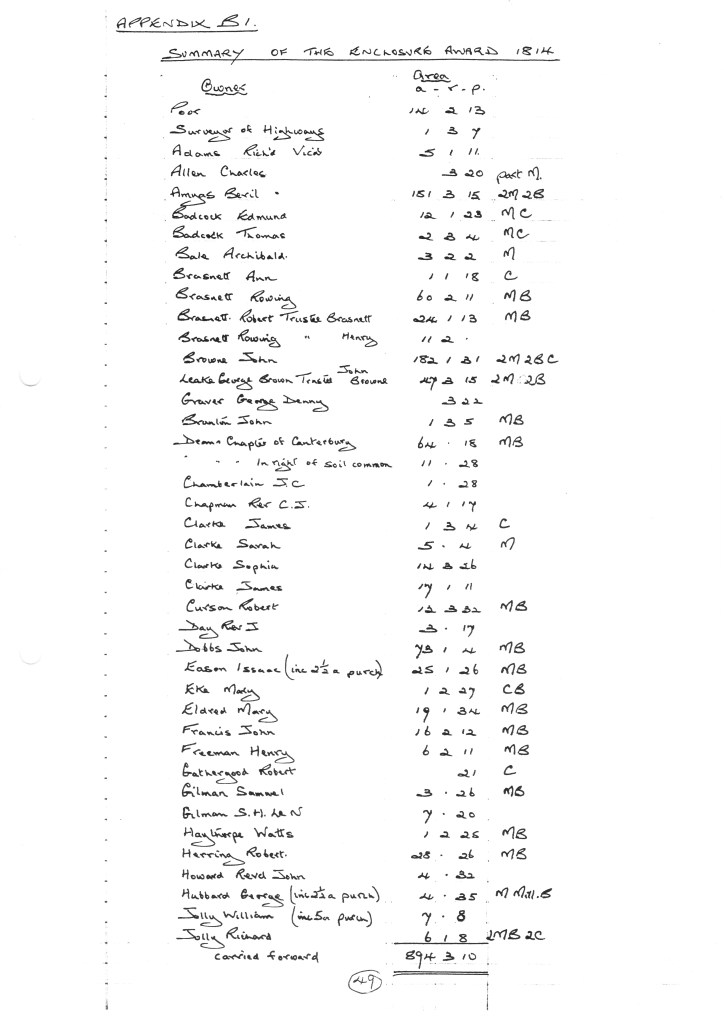 APPENDIX B1.
SUMMARY OF THE ENCLOSURE AWARD 1814
Owner Area
a - r - p.
Poor 14 2 13
Surveyor of Highways 1 3 7
Adams Rich'd Vic'r 5 1 11.
Allen Charles 3 20 part M.
Amyas Beril 151 3 15 2M 2B
Badcock Edmund 12 1 23 MC
Badcock Thomas 2 3 4 MC
Bale Archibald. 3 2 2 M
Brasnett Ann 1 1 18 C
Brasnett Rowing 60 2 11 MB
Brasnett. Robert Trustee Brasnett 24 1 13 MB
Brasnett Rowing " Henry 11 2 .
Browne John 182 1 31 2M 2B C
Leake George Brown Trustee John Browne 47 3 15 2M 2B
Graver George Denny 3 22
Brunton John 1 3 5 MB
Dean & Chapter of Canterbury 64 . 18 MB
" " " In right of soil common 11 . 28
Chamberlain J.C 1 . 28
Chapman Rev C.J. 4 1 17
Clarke James 1 3 4 C
Clarke Sarah 5 . 4 M
Clarke Sophia 14 3 26
Clarke James 17 1 11
Curson Robert 12 3 32 MB
Day Rev J 3 . 17
Dobbs John 73 1 4 MB
Eason Issac (inc 2½ a purch) 25 1 26 MB
Eke Mary 1 2 27 CB
Eldred Mary 19 1 34 MB
Francis John 16 2 12 MB
Freeman Henry 6 2 11 MB
Gathergood Robert 21 C
Gilman Samuel 3 . 26 MB
Gilman S.H. Le N 7 . 20
Haylthorpe Watts 1 2 25 MB
Herring Robert. 28 . 26 MB
Howard Revd John 4 . 32
Hubbard George (inc 2½ a purch) 4 . 35 M Mill. B
Jolly William (inc 5a purch) 7 . 8
Jolly Richard 6 1 8 2MB 2C
carried forward 894 3 10
49